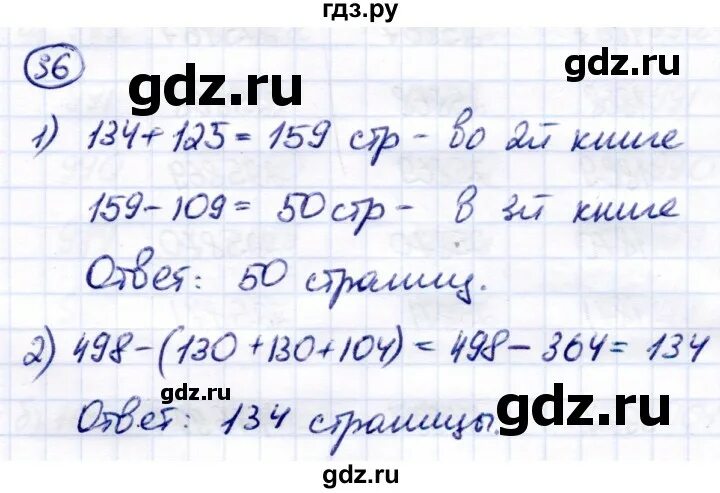 гдз.ру
36
gdz.ru
gdz.ru
1) 134+125=159 стр - во 2й книге
159-109=50 стр - в 3й книге
Ответ: 50 страниц.
2) 498-(130+130+104)=498-364=134
gdz.ru
gdz.ru
Ответ: 134 страницы.
gdz.ru